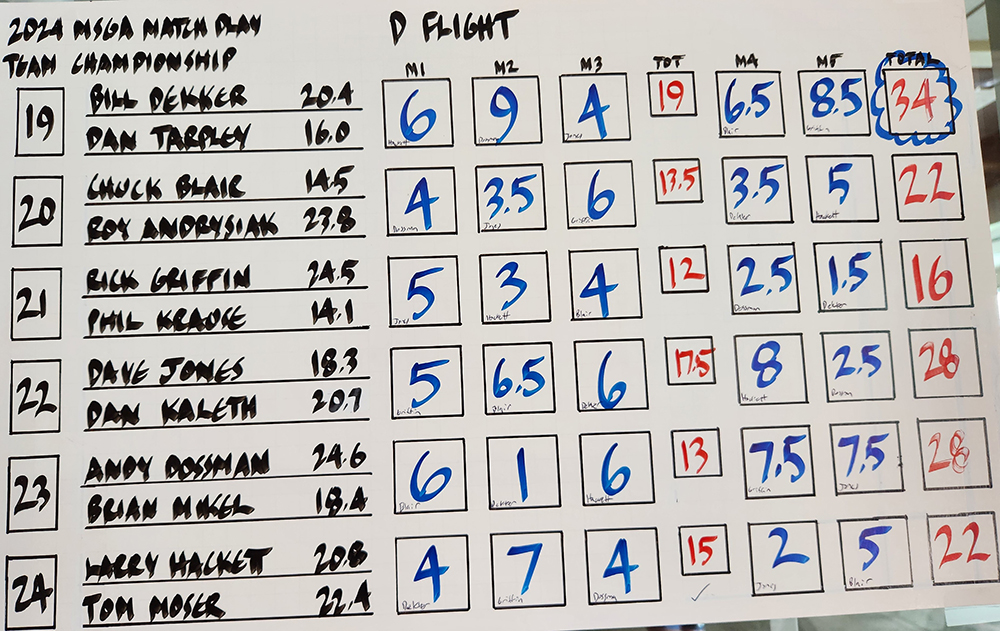 2024 MSGA MATCH PLAY
TEAM CHAMPIONSHIP
D FLIGHT
M1 M2 M3 TOT M4 M5 TOTAL
19 BILL DEKKER 20.4 6 9 4 19 6.5 8.5 34
DAN TARPLEY 16.0
Hackett Dossman Jones Blair Griffin
20 CHUCK BLAIR 14.5 4 3.5 6 13.5 3.5 5 22
ROY ANDRYSIAK 23.8
Dossman Jones Griffin Dekker Hackett
21 RICK GRIFFIN 24.5 5 3 4 12 2.5 1.5 16
PHIL KRAUSE 14.1
Jones Hackett Blair Dossman Dekker
22 DAVE JONES 18.3 5 6.5 6 17.5 8 2.5 28
DAN KALETH 20.7
Griffin Blair Dekker Hackett Dossman
23 ANDY DOSSMAN 24.6 6 1 6 13 7.5 7.5 28
BRIAN MIKEL 18.4
Blair Dekker Hackett Griffin Jones
24 LARRY HACKETT 20.8 4 7 4 15 2 5 22
TOM MOSER 22.4
Dekker Griffin Dossman Jones Blair